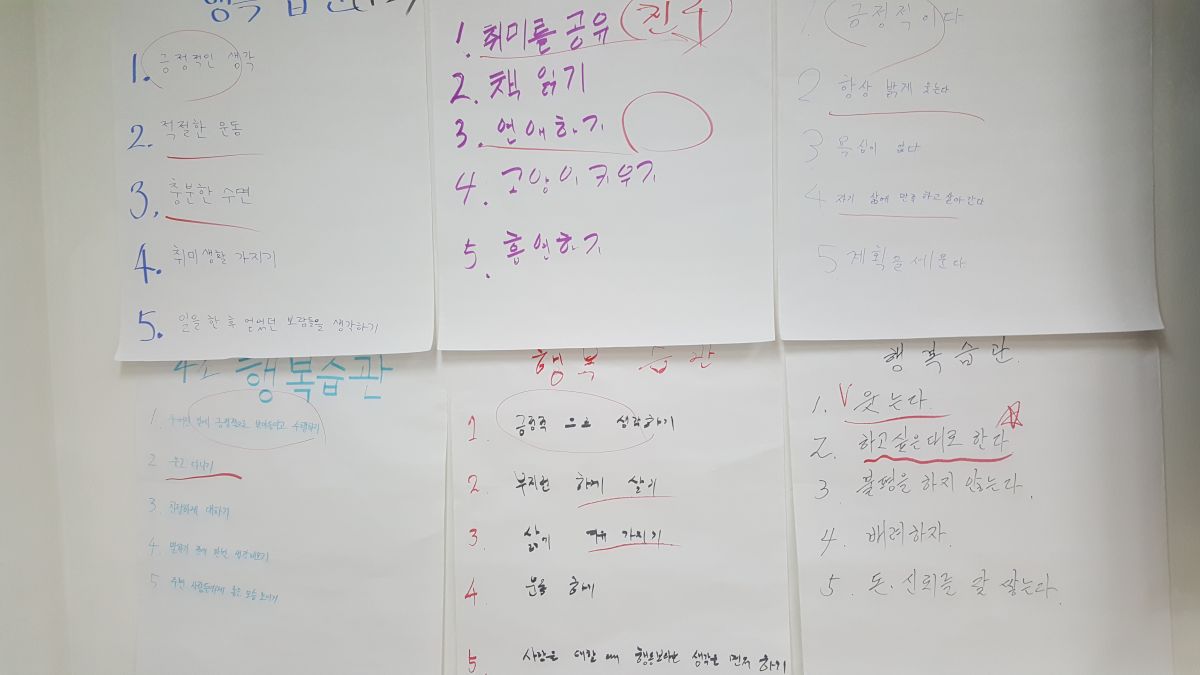 행복습관
1. 긍정적인 생각
2. 적절한 운동
3. 충분한 수면
4. 취미생활 가지기
5. 일을 한 후 얻었던 보람들을 생각하기
1. 취미를 공유 친구
2. 책 읽기
3. 연애하기
4. 고양이 키우기
5. 흡연하기
1. 긍정적이다
2 항상 밝게 웃는다
3 욕심이 없다
4 자기 삶에 만족하고 살아간다
5 계획을 세운다
4조 행복습관
1. 긍정적으로 받아들이고
2 웃고 다니기
3. 대하기
4. 말하기 전에 한번 생각해보기
5 주변 사람들에게 좋은 모습 보이기
행복습관
1. 긍정적으로 생각하기
2. 부지런하게 살기
3. 여유 가지기
4 운동
5 사람을 대할 때 행동보다는 생각을 먼저 하기
행복습관.
1. V 웃는다.
2. 하고싶은대로 한다
3. 불평을 하지 않는다.
4. 배려하자.
5. 돈·신뢰를 잘 쌓는다.